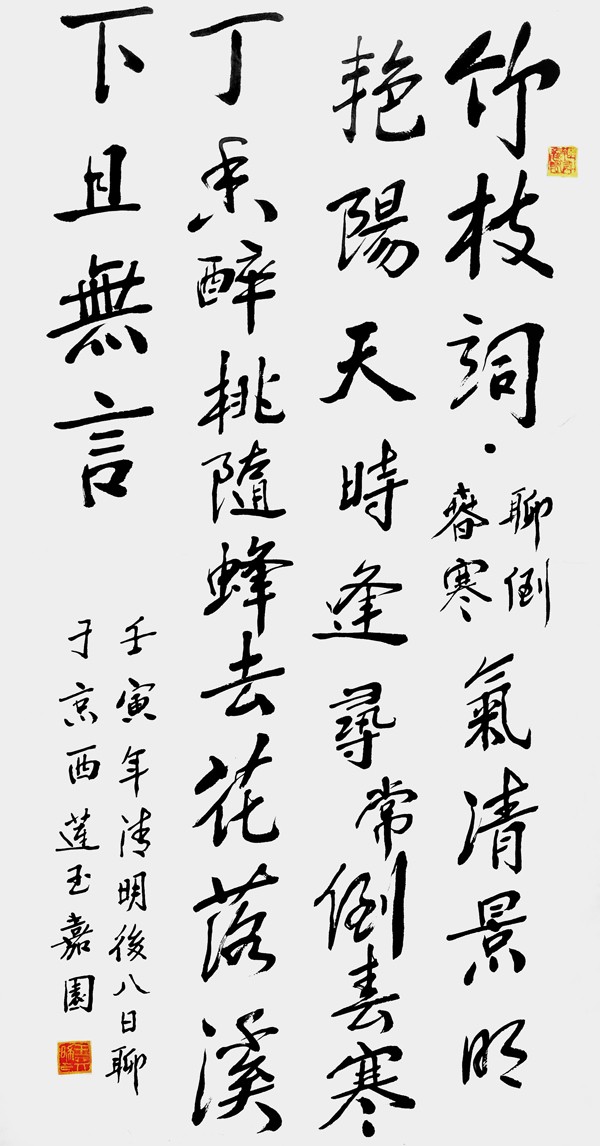 竹枝詞·
聊倒
春寒
氣清景明
艳陽天時逢尋常倒春寒
丁香醉桃隨蜂去花落溪
下且無言
壬寅年清明後八日聊
于京西蓮玉嘉園